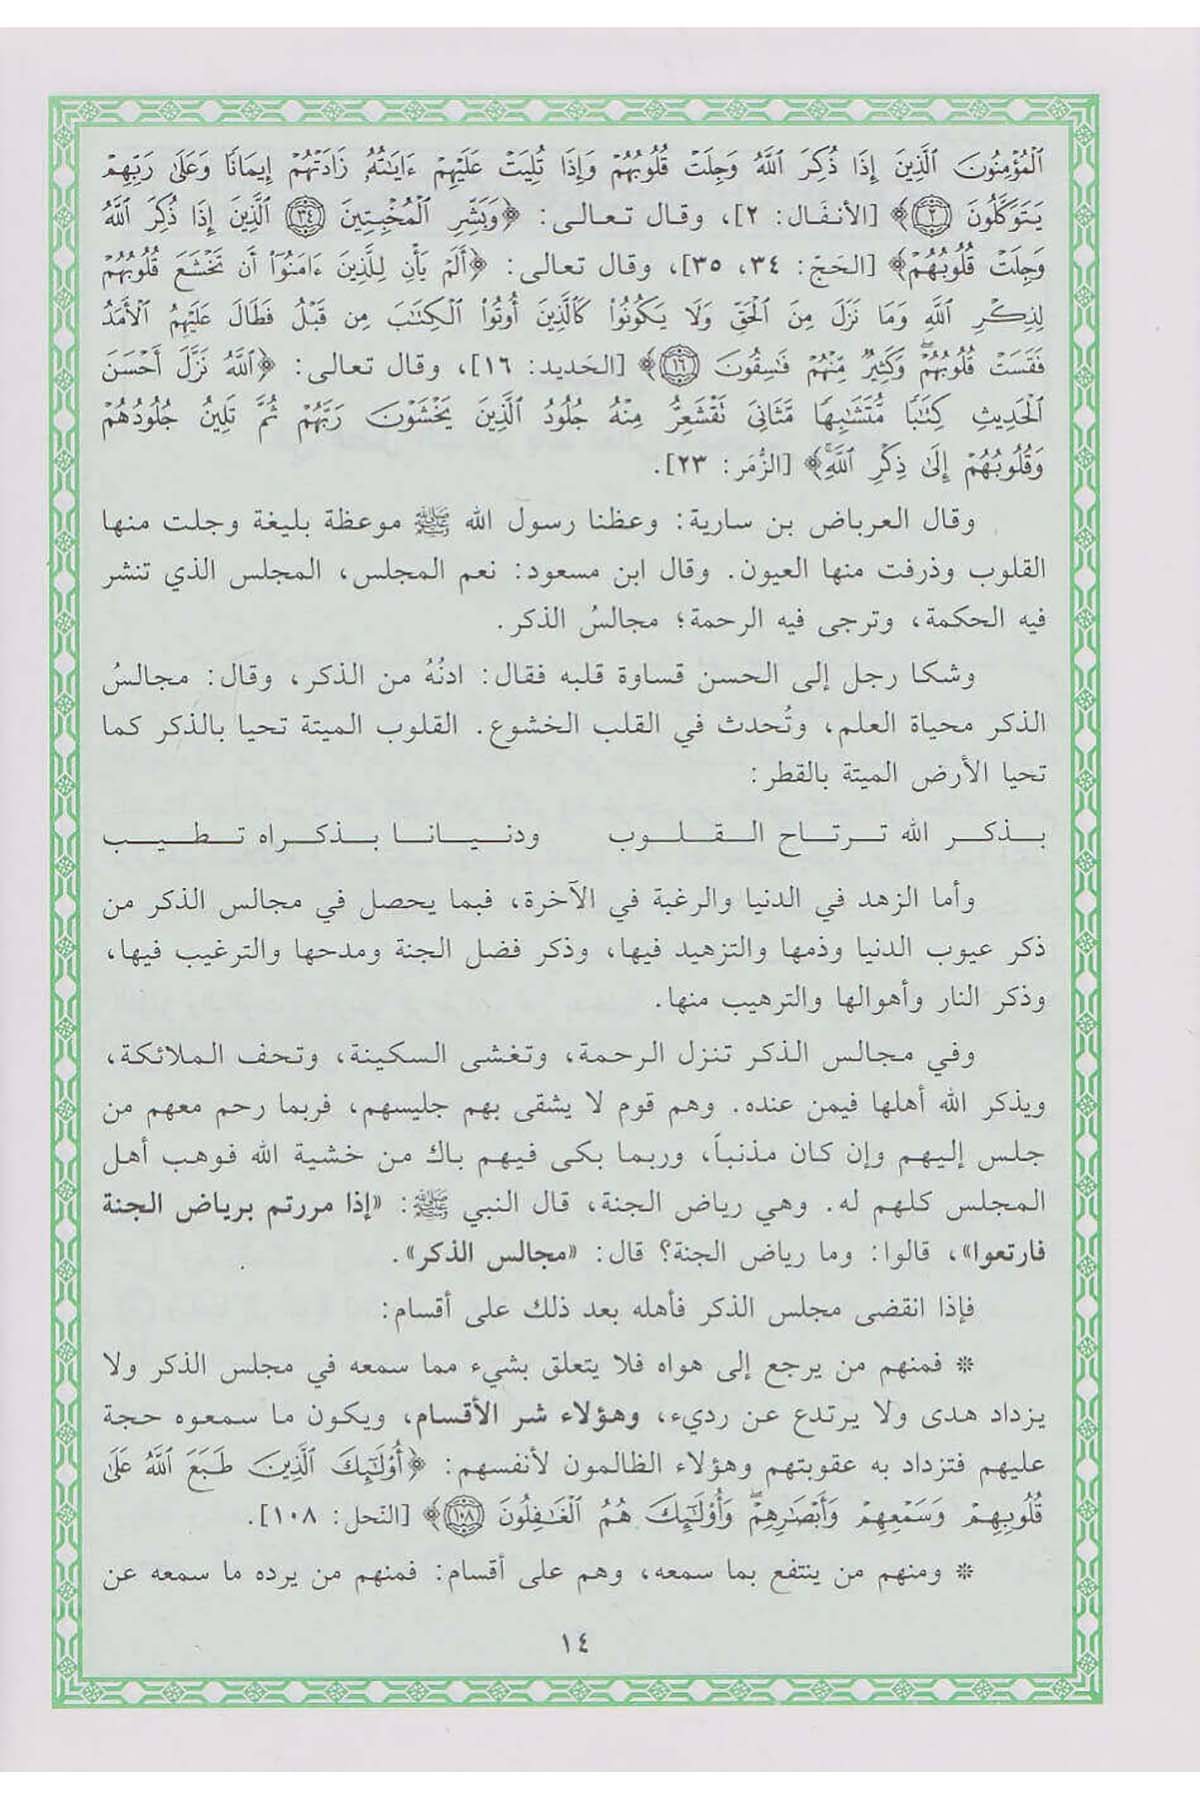 ٱلْمُؤْمِنُونَ ٱلَّذِينَ إِذَا ذُكِرَ ٱللَّهُ وَجِلَتْ قُلُوبُهُمْ وَإِذَا تُلِيَتْ عَلَيْهِمْ ءَايَٰتُهُۥ زَادَتْهُمْ إِيمَٰنًا وَعَلَىٰ رَبِّهِمْ
يَتَوَكَّلُونَ ﴿٢﴾﴾ [الأنفَال: ٢]، وقال تعالى: ﴿وَبَشِّرِ ٱلْمُخْبِتِينَ ﴿٣٤﴾ ٱلَّذِينَ إِذَا ذُكِرَ ٱللَّهُ
وَجِلَتْ قُلُوبُهُمْ﴾ [الحَجّ: ٣٤، ٣٥]، وقال تعالى: ﴿أَلَمْ يَأْنِ لِلَّذِينَ ءَامَنُوٓا۟ أَن تَخْشَعَ قُلُوبُهُمْ
لِذِكْرِ ٱللَّهِ وَمَا نَزَلَ مِنَ ٱلْحَقِّ وَلَا يَكُونُوا۟ كَٱلَّذِينَ أُوتُوا۟ ٱلْكِتَٰبَ مِن قَبْلُ فَطَالَ عَلَيْهِمُ ٱلْأَمَدُ
فَقَسَتْ قُلُوبُهُمْ ۖ وَكَثِيرٌ مِّنْهُمْ فَٰسِقُونَ ﴿١٦﴾﴾ [الحَديد: ١٦]، وقال تعالى: ﴿ٱللَّهُ نَزَّلَ أَحْسَنَ
ٱلْحَدِيثِ كِتَٰبًا مُّتَشَٰبِهًا مَّثَانِىَ تَقْشَعِرُّ مِنْهُ جُلُودُ ٱلَّذِينَ يَخْشَوْنَ رَبَّهُمْ ثُمَّ تَلِينُ جُلُودُهُمْ
وَقُلُوبُهُمْ إِلَىٰ ذِكْرِ ٱللَّهِ ۚ﴾ [الزُّمَر: ٢٣].
وقال العرباض بن سارية: وعظنا رسول الله ﷺ موعظة بليغة وجلت منها
القلوب وذرفت منها العيون. وقال ابن مسعود: نعم المجلس، المجلس الذي تنشر
فيه الحكمة، وترجى فيه الرحمة؛ مجالسُ الذكر.
وشكا رجل إلى الحسن قساوة قلبه فقال: ادنُهُ من الذكر، وقال: مجالسُ
الذكر محياة العلم، وتُحدث في القلب الخشوع. القلوب الميتة تحيا بالذكر كما
تحيا الأرض الميتة بالقطر:
بذكر الله ترتاح القلوب ودنيانا بذكراه تطيب
وأما الزهد في الدنيا والرغبة في الآخرة، فبما يحصل في مجالس الذكر من
ذكر عيوب الدنيا وذمها والتزهيد فيها، وذكر فضل الجنة ومدحها والترغيب فيها،
وذكر النار وأهوالها والترهيب منها.
وفي مجالس الذكر تنزل الرحمة، وتغشى السكينة، وتحف الملائكة،
ويذكر الله أهلها فيمن عنده. وهم قوم لا يشقى بهم جليسهم، فربما رحم معهم من
جلس إليهم وإن كان مذنباً، وربما بكى فيهم باك من خشية الله فوهب أهل
المجلس كلهم له. وهي رياض الجنة، قال النبي ﷺ: «إذا مررتم برياض الجنة
فارتعوا»، قالوا: وما رياض الجنة؟ قال: «مجالس الذكر».
فإذا انقضى مجلس الذكر فأهله بعد ذلك على أقسام:
* فمنهم من يرجع إلى هواه فلا يتعلق بشيء مما سمعه في مجلس الذكر ولا
يزداد هدى ولا يرتدع عن رديء، وهؤلاء شر الأقسام، ويكون ما سمعوه حجة
عليهم فتزداد به عقوبتهم وهؤلاء الظالمون لأنفسهم: ﴿أُو۟لَٰٓئِكَ ٱلَّذِينَ طَبَعَ ٱللَّهُ عَلَىٰ
قُلُوبِهِمْ وَسَمْعِهِمْ وَأَبْصَٰرِهِمْ ۖ وَأُو۟لَٰٓئِكَ هُمُ ٱلْغَٰفِلُونَ ﴿١٠٨﴾﴾ [النّحل: ١٠٨].
* ومنهم من ينتفع بما سمعه، وهم على أقسام: فمنهم من يرده ما سمعه عن
١٤